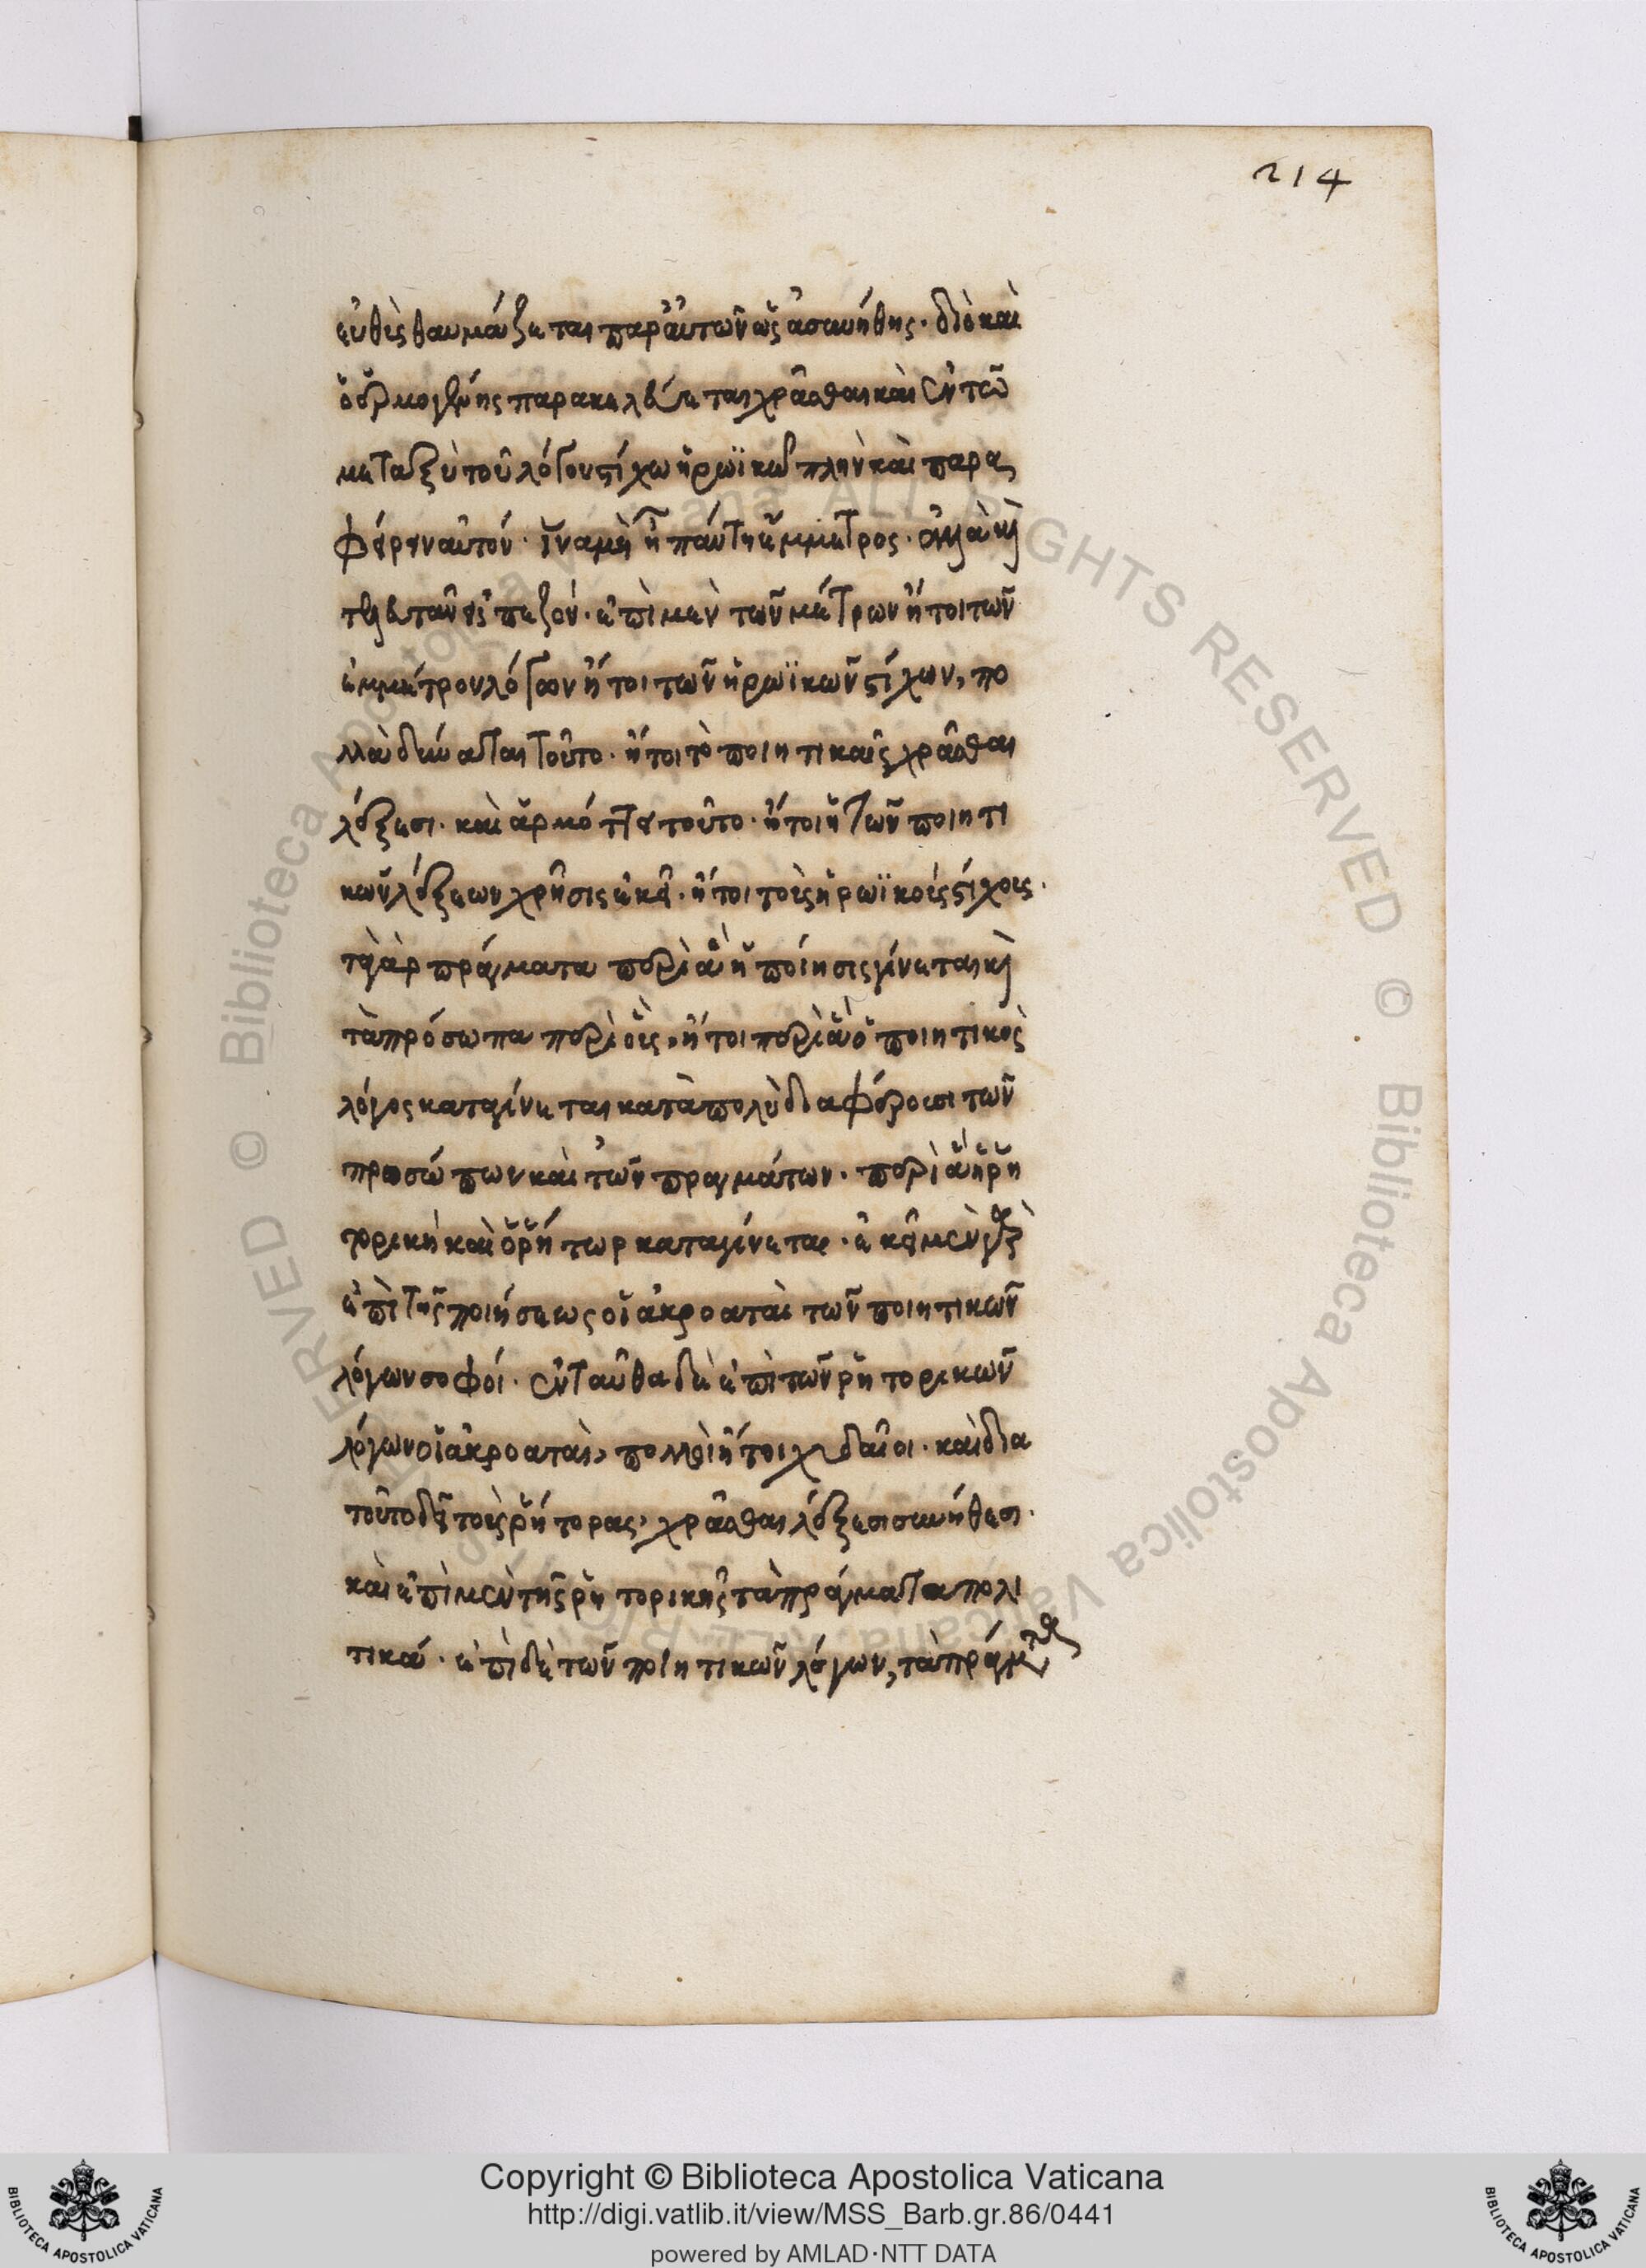 214
εὐθὺς θαυμάζεται παρ' αὐτῶν ὡς ἀσυνήθης · διὸ καὶ
ὁ ἑρμογένης παρακελεύεται χρᾶσθαι καὶ ἐν τῶ
μεταξὺ τοῦ λόγου στίχω ἡρωϊκῶ πλὴν καὶ παρα
φέρειν αὐτόν · ἵνα μὴ ἦ πάντη ἔμμετρος · ἀλλὰ καὶ
πεζόν · ἐπὶ μὲν τῶν μέτρων ἤτοι τῶν
ἐμμέτρον λόγων ἤτοι τῶν ἡρωϊκῶν στίχων, πο
λλὰ δὲ τοῦτο · ἤτοι τὸ ποιητικαῖς χρᾶσθαι
λέξεσι · καὶ ἁρμόττει τοῦτο · ἤτοι ἡ τῶν ποιητι
κῶν λέξεων χρῆσις ἐκεῖ · ἤτοι τοῖς ἡρωϊκοῖς στίχοις ·
τὰ γὰρ πράγματα περὶ ἃ ἡ ποίησις γίνεται καὶ
τὰ πρόσωπα περὶ οἷς, ἤτοι περὶ ἃ ὁ ποιητικὸς
λόγος καταγίνεται κατὰ πολὺ διαφέρουσι τῶν
προσώπων καὶ τῶν πραγμάτων · περὶ ἃ ἡ ῥη
τορικὴ καὶ ὁ ῥήτωρ καταγίνεται · ἐκεῖ μὲν γὰρ
ἐπὶ τῆς ποιήσεως οἱ ἀκροαταὶ τῶν ποιητικῶν
λόγων σοφοί · ἐνταῦθα δὲ ἐπὶ τῶν ῥητορικῶν
λόγων οἱ ἀκροαταὶ, πολλοὶ ἤτοι χυδαῖοι · καὶ δια
τοῦτο δεῖ τοὺς ῥήτορας, χρᾶσθαι λέξεσι συνήθεσι ·
καὶ ἐπὶ μὲν τῆς ῥητορικῆς τὰ πράγματα πολι
τικά · ἐπὶ δὲ τῶν ποιητικῶν λόγων, τὰ πράγματα
Copyright © Biblioteca Apostolica Vaticana
http://digi.vatlib.it/view/MSS_Barb.gr.86/0441
powered by AMLAD·NTT DATA
BIBLIOTECA APOSTOLICA VATICANA
BIBLIOTECA APOSTOLICA VATICANA